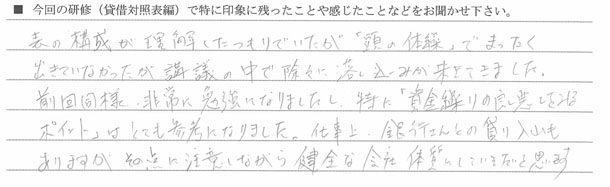 ■ 今回の研修（貸借対照表編）で特に印象に残ったことや感じたことなどをお聞かせ下さい。
表の構成が理解したつもりでいたが「頭の体繰」でまったく
出きていなかったが講議の中で除々に落し込みが来てきました。
前回同様、非常に勉強になりましたし、特に「資金繰りの良し悪しをみる
ポイント」はとても参考になりました。仕事上、銀行さんとの貸り入れも
ありますが その点に注意しながら健全な会社体質にしていきたいと思います